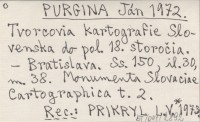 PURGINA Ján 1972.
Tvorcovia kartografie Slo-
venska do pol. 18. storočia.
- Bratislava. Ss. 150, il. 30,
m. 38. Monumenta Slovaciae
Cartographica t. 2.
Rec.: PRIKRYL L.V. 1973